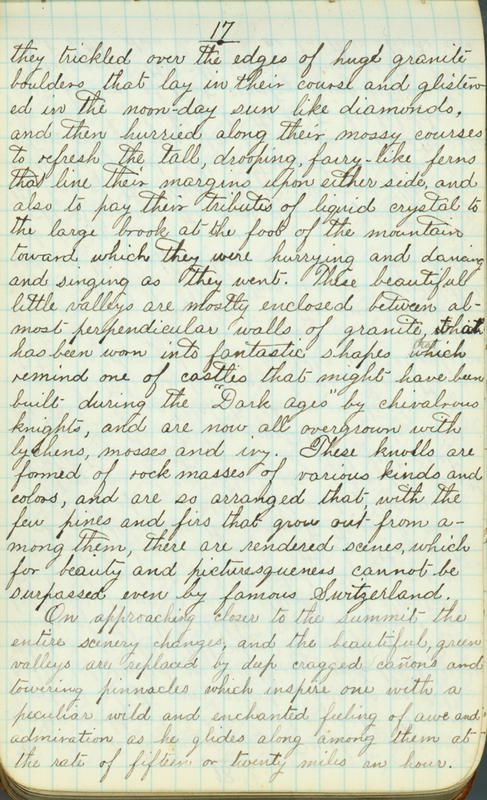 17
they trickled over the edges of huge granite
boulders that lay in their course and glisten-
ed in the noon-day sun like diamonds,
and then hurried along their mossy courses
to refresh the tall, drooping, fairy-like ferns
that line their margins upon either side, and
also to pay their tributes of liquid crystal to
the large brook at the foot of the mountain
toward which they were hurrying and dancing
and singing as they went. These beautiful
little valleys are mostly enclosed between al-
most perpendicular walls of granite, that
has been worn into fantastic shapes which
remind one of castles that might have been
built during the "Dark ages" by chivalous
knights, and are now all overgrown with
lychens, mosses and ivy. These knolls are
formed of rock masses of various kinds and
colors, and are so arranged that, with the
few pines and firs that grow out from a-
mong them, there are rendered scenes, which
for beauty and picturesqueness cannot be
surpassed even by famous Switzerland.
On approaching closer to the summit the
entire scenery changes, and the beautiful, green
valleys are replaced by deep cragged cañons and
towering pinnacles which inspire one with a
peculiar wild and enchanted feeling of awe and
admiration as he glides along among them at
the rate of fifteen or twenty miles an hour.